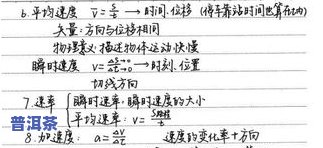 6.平均速度 v̄=s/t → 时间、位移 (停车靠站时间也算在内)
矢量:方向与位移相同
物理意义:描述物体运动快慢
瞬时速度 v=Δs→0/Δt→0 → 时刻、位置
切线方向
7.速率 { 瞬时速率:瞬时速度的大小
平均速率:v=s路程/t
8.加速度: a=Δv/Δt 速度的变化率+方向
普洱茶